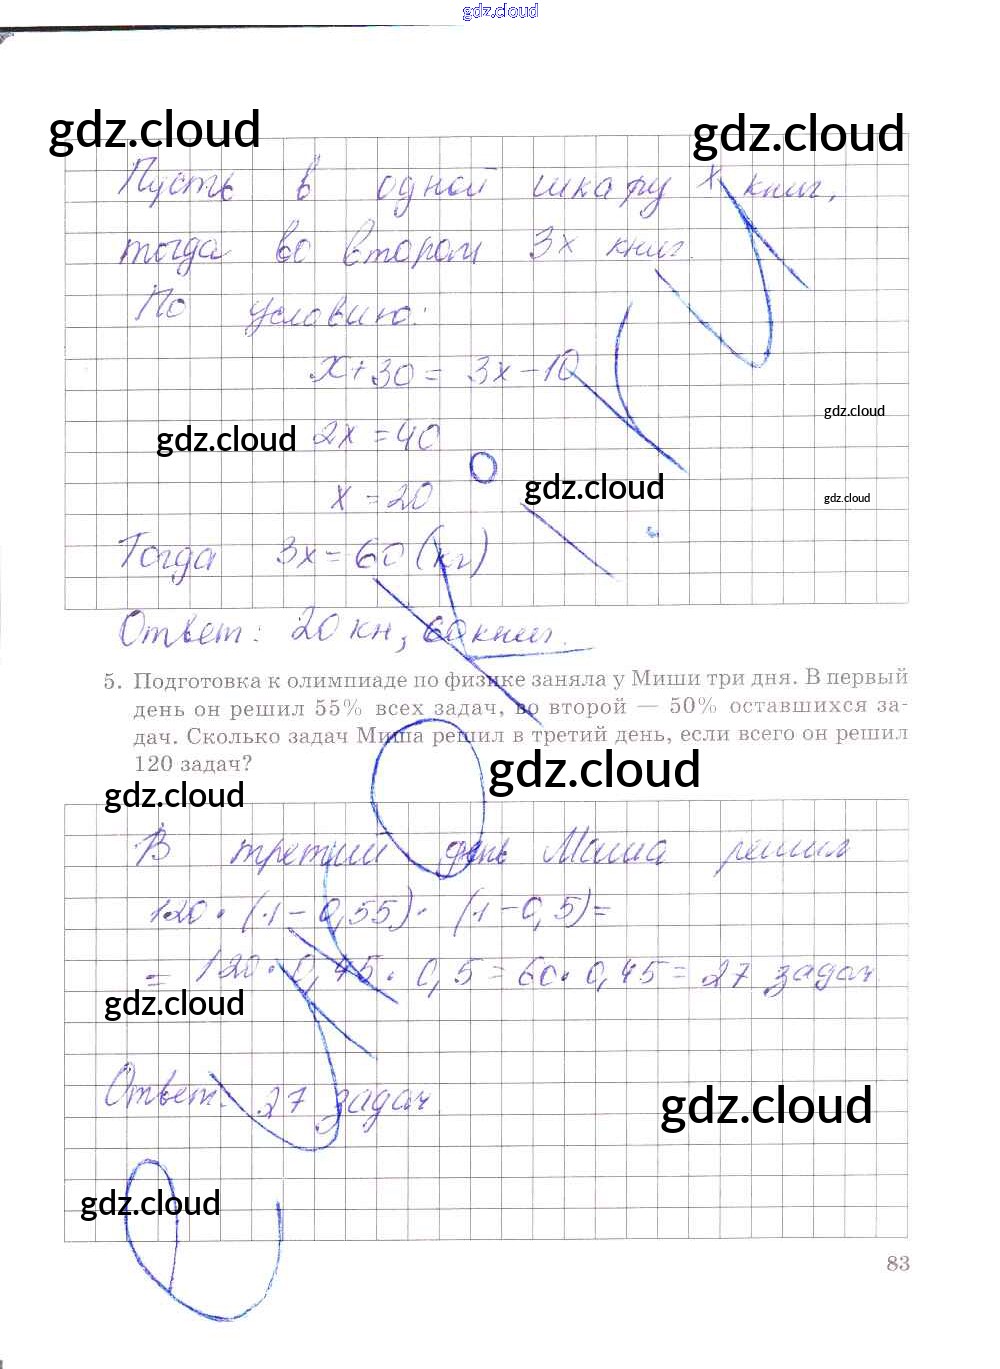 gdz.cloud
gdz.cloud
gdz.cloud
Пусть в одной шкафу x книг,
тогда во втором 3x книг.
По условию:
x+30 = 3x-10
gdz.cloud
2x = 40
gdz.cloud
gdz.cloud
x = 20
gdz.cloud
Тогда 3x = 60 (кг)
Ответ: 20 кн, 60 книг.
5. Подготовка к олимпиаде по физике заняла у Миши три дня. В первый
день он решил 55% всех задач, во второй — 50% оставшихся за-
дач. Сколько задач Миша решил в третий день, если всего он решил
120 задач?
gdz.cloud
gdz.cloud
В третий день Маша решил
120 · (1 - 0,55) · (1 - 0,5) =
= 120 · 0,45 · 0,5 = 60 · 0,45 = 27 задач
gdz.cloud
Ответ: 27 задач.
gdz.cloud
gdz.cloud
83